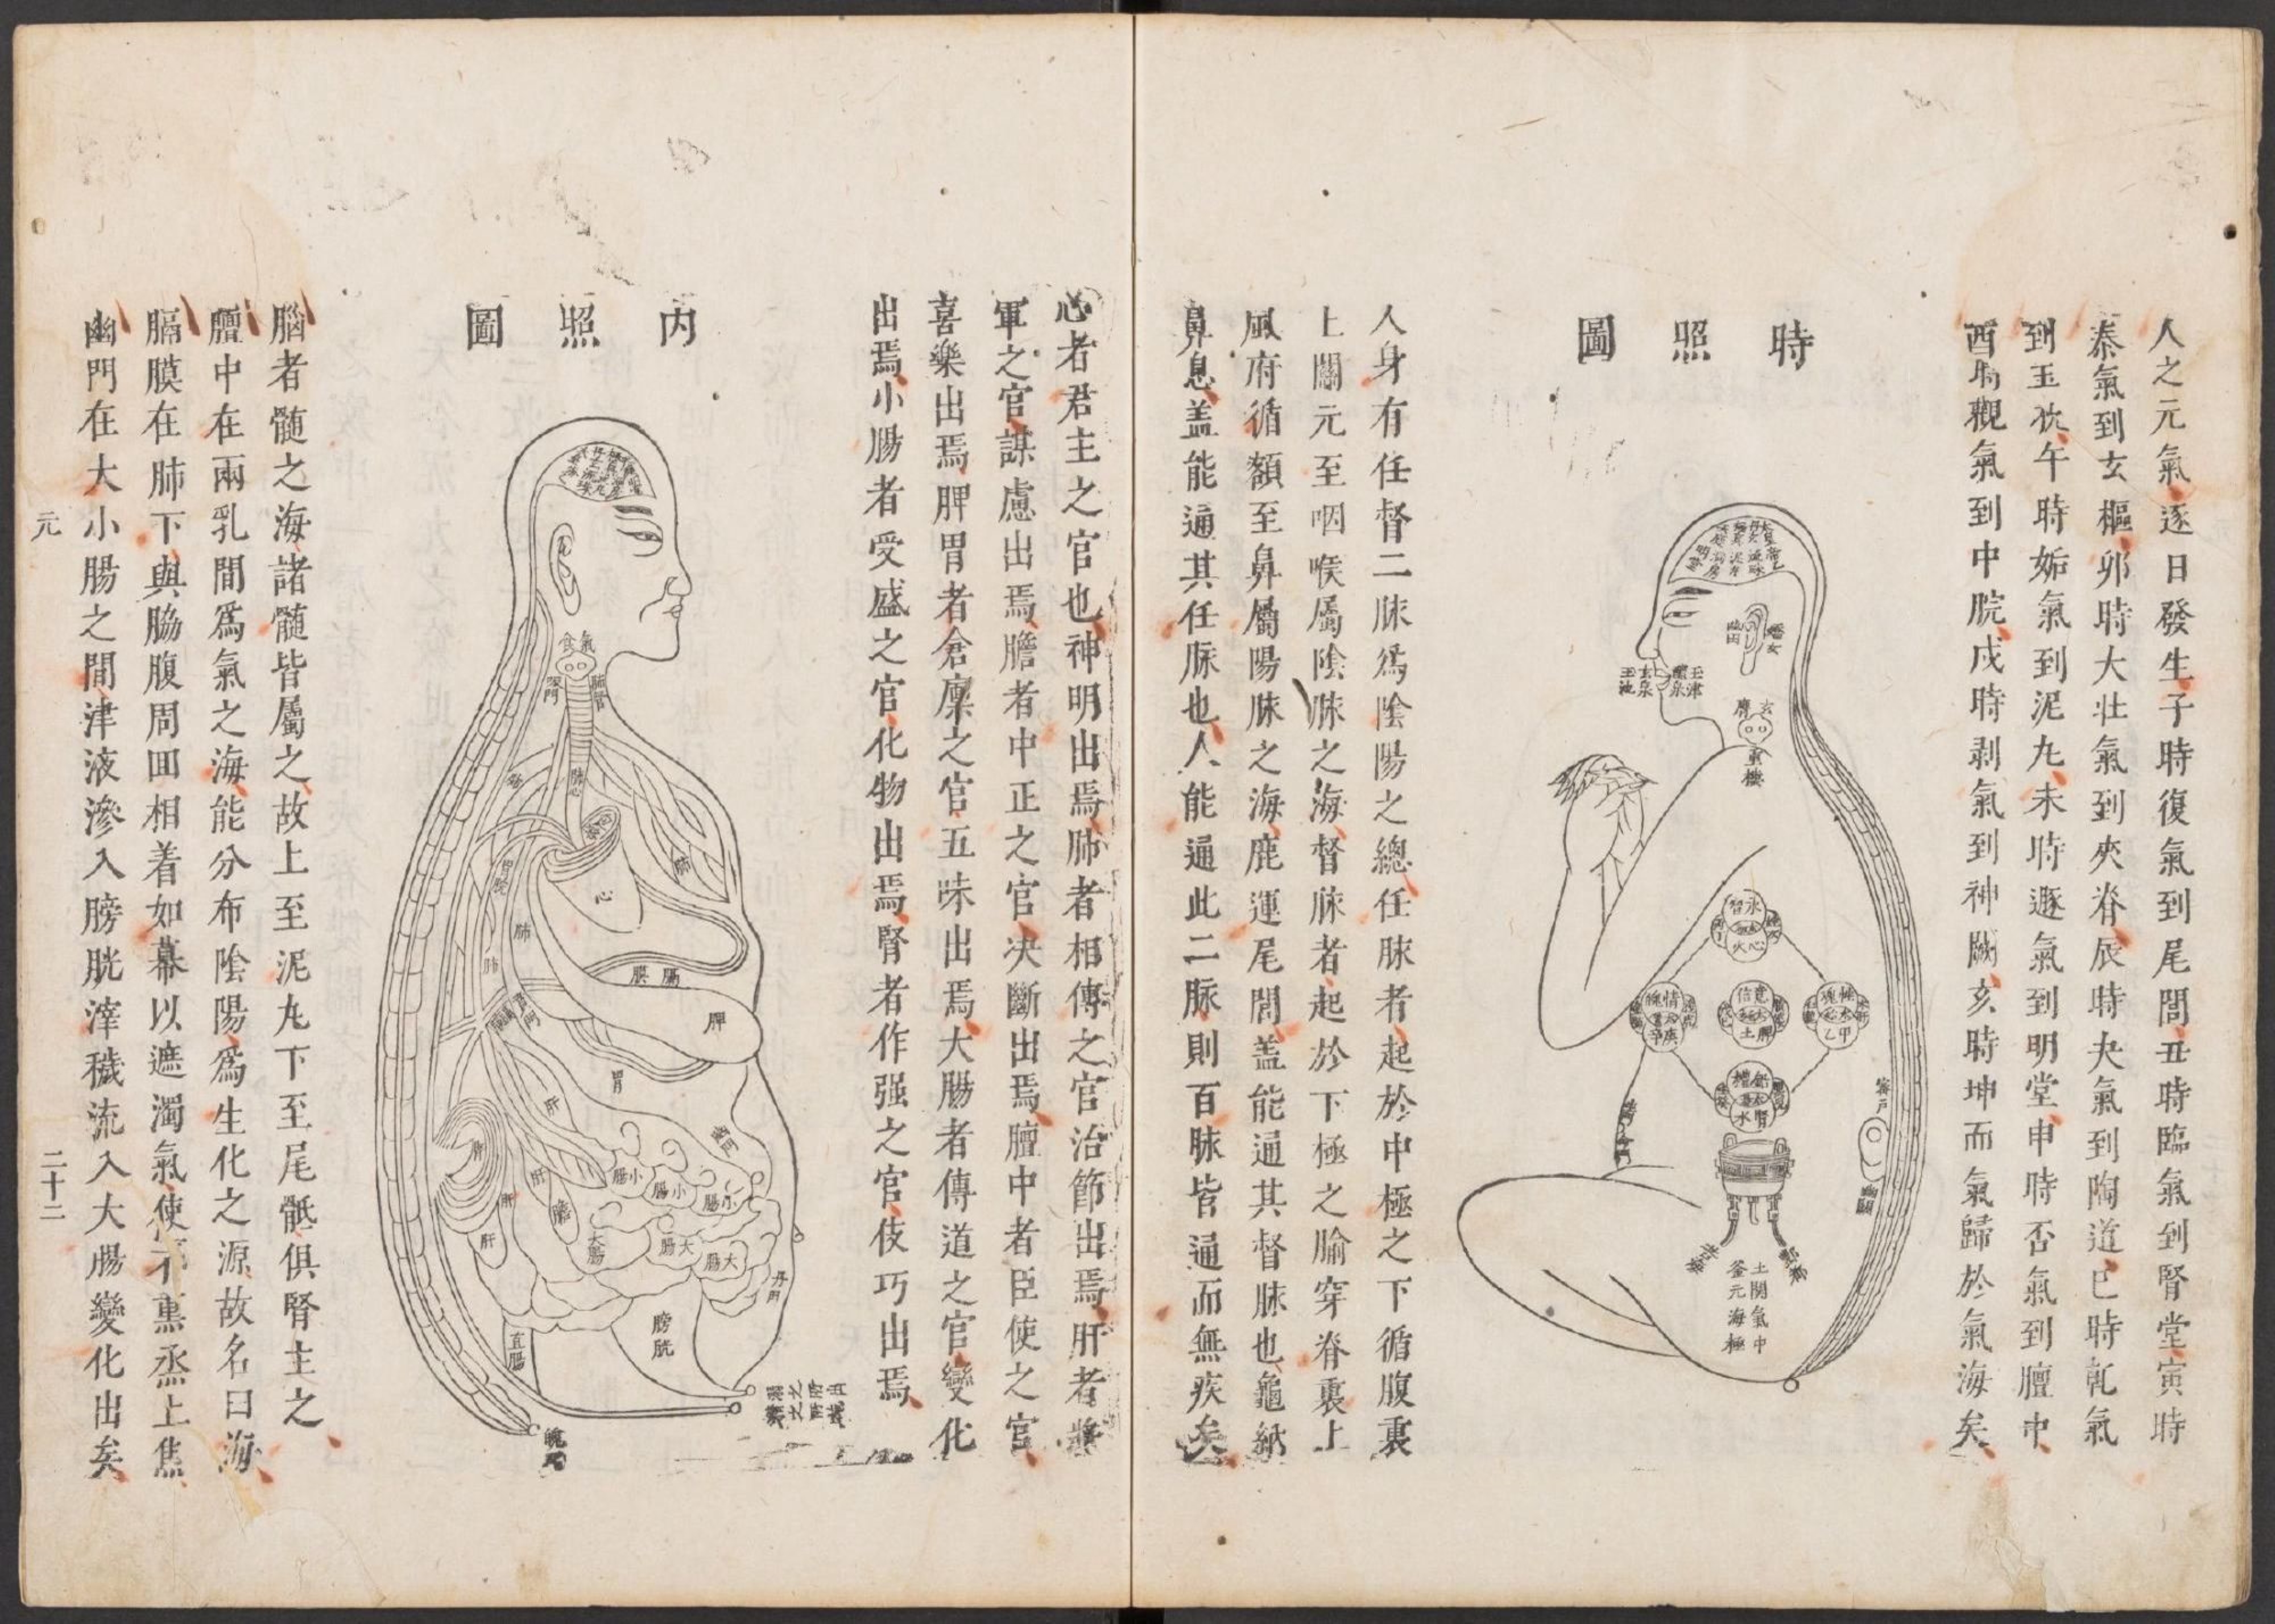 人之元氣逐日發生子時復氣到尾閭丑時臨氣到腎堂寅時
泰氣到玄樞卯時大壯氣到夾脊辰時夬氣到陶道巳時乹氣
到玉枕午時姤氣到泥丸未時遯氣到明堂申時否氣到膻中
酉時觀氣到中脘戌時剥氣到神闕亥時坤而氣歸於氣海矣
時照圖
泥丸
玄泉
玉池
醴泉
玉津
玄膺
重樓
智 氷
心 火
情
庚 辛
意 信
脾 土
魂
甲 乙
腎 水
密戶
土釜
關元
氣海
中極
人身有任督二脉爲陰陽之總任脉者起於中極之下循腹裏
上關元至咽喉屬陰脉之海督脉者起於下極之腧穿脊裏上
風府循額至鼻屬陽脉之海鹿運尾閭盖能通其督脉也龜納
鼻息盖能通其任脉也人能通此二脈則百脉皆通而無疾矣
心者君主之官也神明出焉肺者相傳之官治節出焉肝者將
軍之官謀慮出焉膽者中正之官决斷出焉膻中者臣使之官
喜樂出焉脾胃者倉廩之官五味出焉大腸者傳道之官變化
出焉小腸者受盛之官化物出焉腎者作强之官伎巧出焉
內照圖
氣
食
肺
心
肺
肺
膈膜
脾
胃
肝
肝
肝
肝
小腸
小腸
小腸
大腸
大腸
大腸
丹門
膀胱
直腸
魄門
腦者髄之海諸髄皆屬之故上至泥丸下至尾骶俱腎主之
膻中在兩乳間爲氣之海能分布陰陽爲生化之源故名曰海
膈膜在肺下與脇腹周囬相着如幕以遮濁氣使不熏烝上焦
幽門在大小腸之間津液滲入膀胱滓穢流入大腸變化出矣
元
二十二